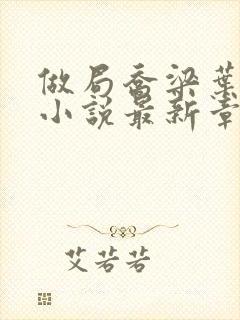 做局乔梁葉
小説最新章
艾若若